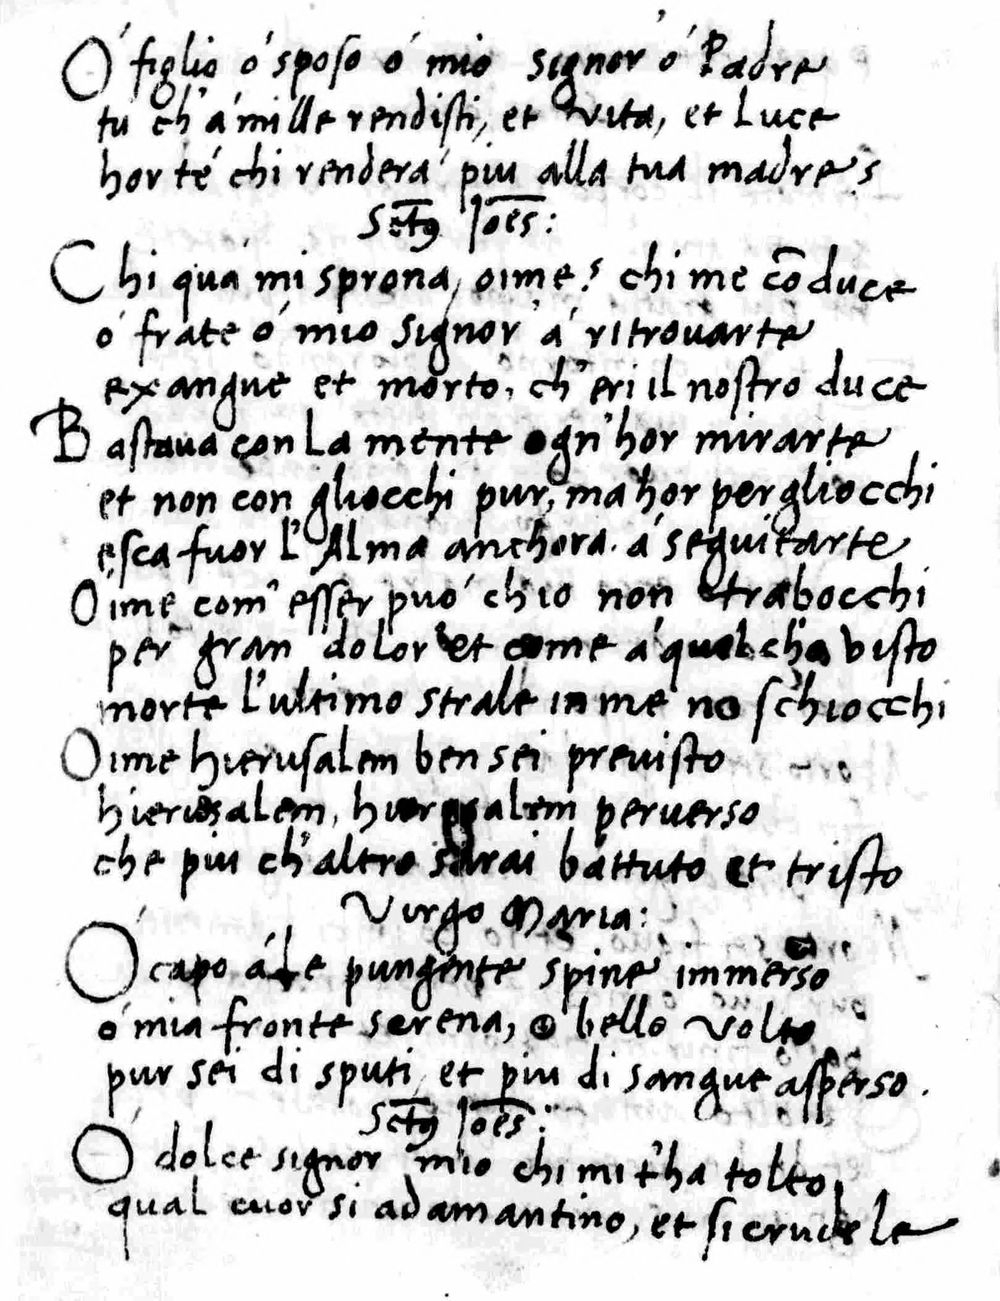 Ó figlio ó sposo ó mio signor ó Padre
tu ch'á mille rendisti, et vita, et Luce
hor té chi renderá piu alla tua madre?
Sct9 Joes:
Chi quá mi sprona, oime? chi me cōduce
ó frate ó mio signor á ritrouarte
exangue et morto, ch'eri il nostro duce
Bastaua con La mente ogn'hor mirarte
et non con gliocchi pur, ma hor per gliocchi
esca fuor l'Alma anchora á seguitarte
Oime com'esser può ch'io non trabocchi
per gran dolor et come á qual ch'ha visto
morte l'ultimo strale in me no schiocchi
Oime hierusalem ben sei previsto
hierusalem, hierusalem peruerso
che piu ch'altro sarai battuto et tristo
Virgo Maria:
O capo á le pungente spine immerso
ó mia fronte serena, o bello volto
pur sei di sputi, et piu di sangue asperso.
Sct9 Joes:
Ó dolce signor mio chi mi t'ha tolto,
qual cuor si adamantino, et si crudele